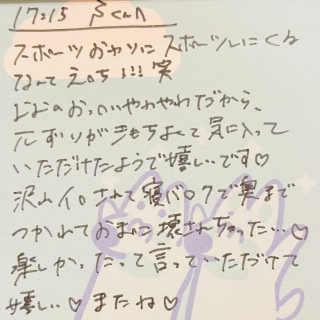 17:15 βくんへ
スポーツおやりにスポーツしにくる
なんてえっち!!!笑
いいのおっぱいやわやわだから、
パイずりがきもちよくて気に入って
いただけたようで嬉しいです♡
沢山イロされて寝バックで奥まで
つかれておまこ壊されちゃった…♡
楽しかったって言っていただけて
嬉しい♡またね♡